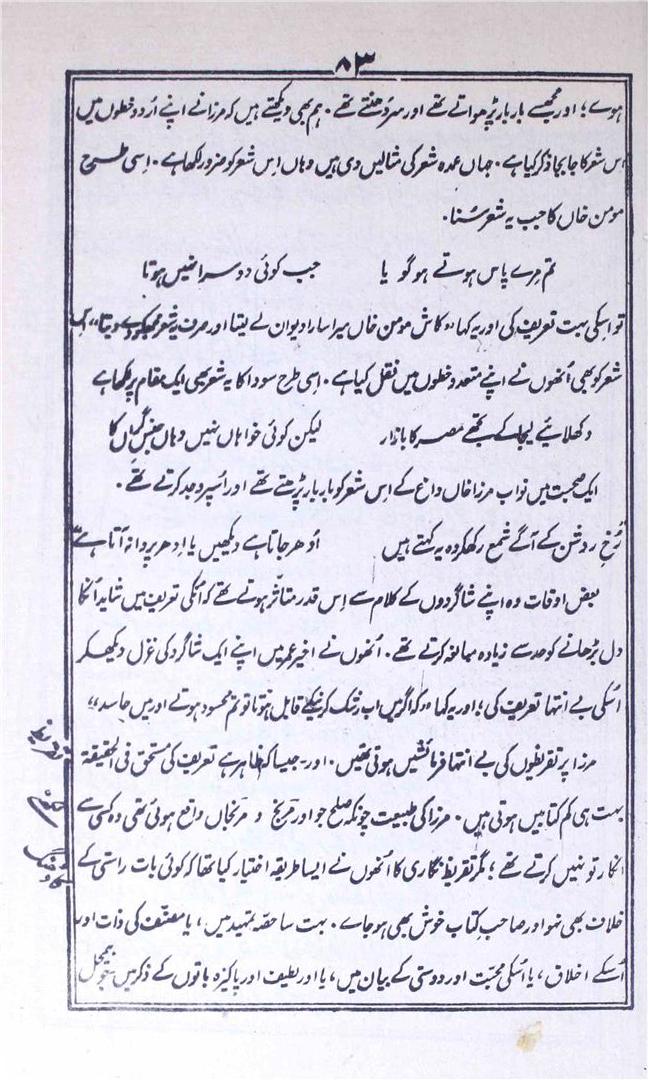 ۸۳
ہوے؛ اور مجھسے بار بار پڑھواتے تھے اور سر دُھنتے تھے۔ ہم بھی دیکھتے ہیں کہ مرزا نے اپنے اُردو خطوں میں
اس شعر کا جا بجا ذکر کیا ہے۔ جہاں عمدہ شعر کی مثالیں دی ہیں وہاں اِس شعر کو ضرور لکھا ہے۔ اِسی طرح
مومن خاں کا جب یہ شعر سُنا۔
تم مرے پاس ہوتے ہو گویا جب کوئی دوسرا نہیں ہوتا
تو اسکی بہت تعریف کی اور یہ کہا "کاش مومن خاں میرا سارا دیوان لے لیتا اور صرف یہ شعر مجھکو دے دیتا،، اس
شعر کو بھی اُنھوں نے اپنے متعدد خطوں میں نقل کیا ہے۔ اِسی طرح سودا کا یہ شعر بھی ایک مقام پر لکھا ہے
دکھلائیے لیجا کے تجھے مصر کا بازار لیکن کوئی خواہاں نہیں وہاں جنسِ گراں کا
ایک صحبت میں نواب مرزا خاں داغ کے اِس شعر کو بار بار پڑھتے تھے اور اسپر وجد کرتے تھے۔
رُخِ روشن کے آگے شمع رکھکر وہ یہ کہتے ہیں اُدھر جاتا ہے دیکھیں یا اِدھر پروانہ آتا ہے
بعض اوقات وہ اپنے شاگردوں کے کلام سے اِس قدر متاثر ہوتے تھے کہ اُنکی تعریف میں شاید اُنکا
دل بڑھانے کو حد سے زیادہ مبالغہ کرتے تھے۔ اُنھوں نے اخیر عمر میں اپنے ایک شاگرد کی غزل دیکھکر
اُسکی بے انتہا تعریف کی؛ اور یہ کہا "کہ اگر میں اب رشک کرنیکے قابل ہوتا تو تم محسود ہوتے اور میں حاسد،،
مرزا پر تقریظوں کی بے انتہا فرمائشیں ہوتی تھیں۔ اور۔ جیسا کہ ظاہر ہے تعریف کی مستحق فی الحقیقۃ
بہت ہی کم کتابیں ہوتی ہیں۔ مرزا کی طبیعت چونکہ صلح جو اور مرنج و مرنجاں واقع ہوئی تھی وہ کسی سے
انکار تو نہیں کرتے تھے؛ مگر تقریظ نگاری کا اُنھوں نے ایسا طریقہ اختیار کیا تھا کہ کوئی بات راستی کے
خلاف بھی نہو اور صاحبِ کتاب خوش بھی ہو جاے۔ بہت سا حصہ تمہید میں، یا مصنف کی ذات اور
اُسکے اخلاق، یا اُسکی محبت اور دوستی کے بیان میں، یا اور لطیف اور پاکیزہ باتوں کے ذکر میں جو